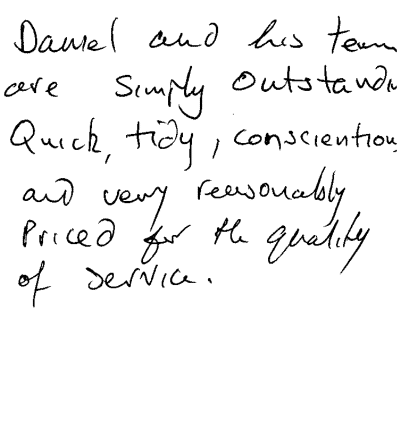 Daniel and his team
are Simply Outstandi
Quick, tidy, conscientiou
and very reasonably
Priced for the quality
of service.